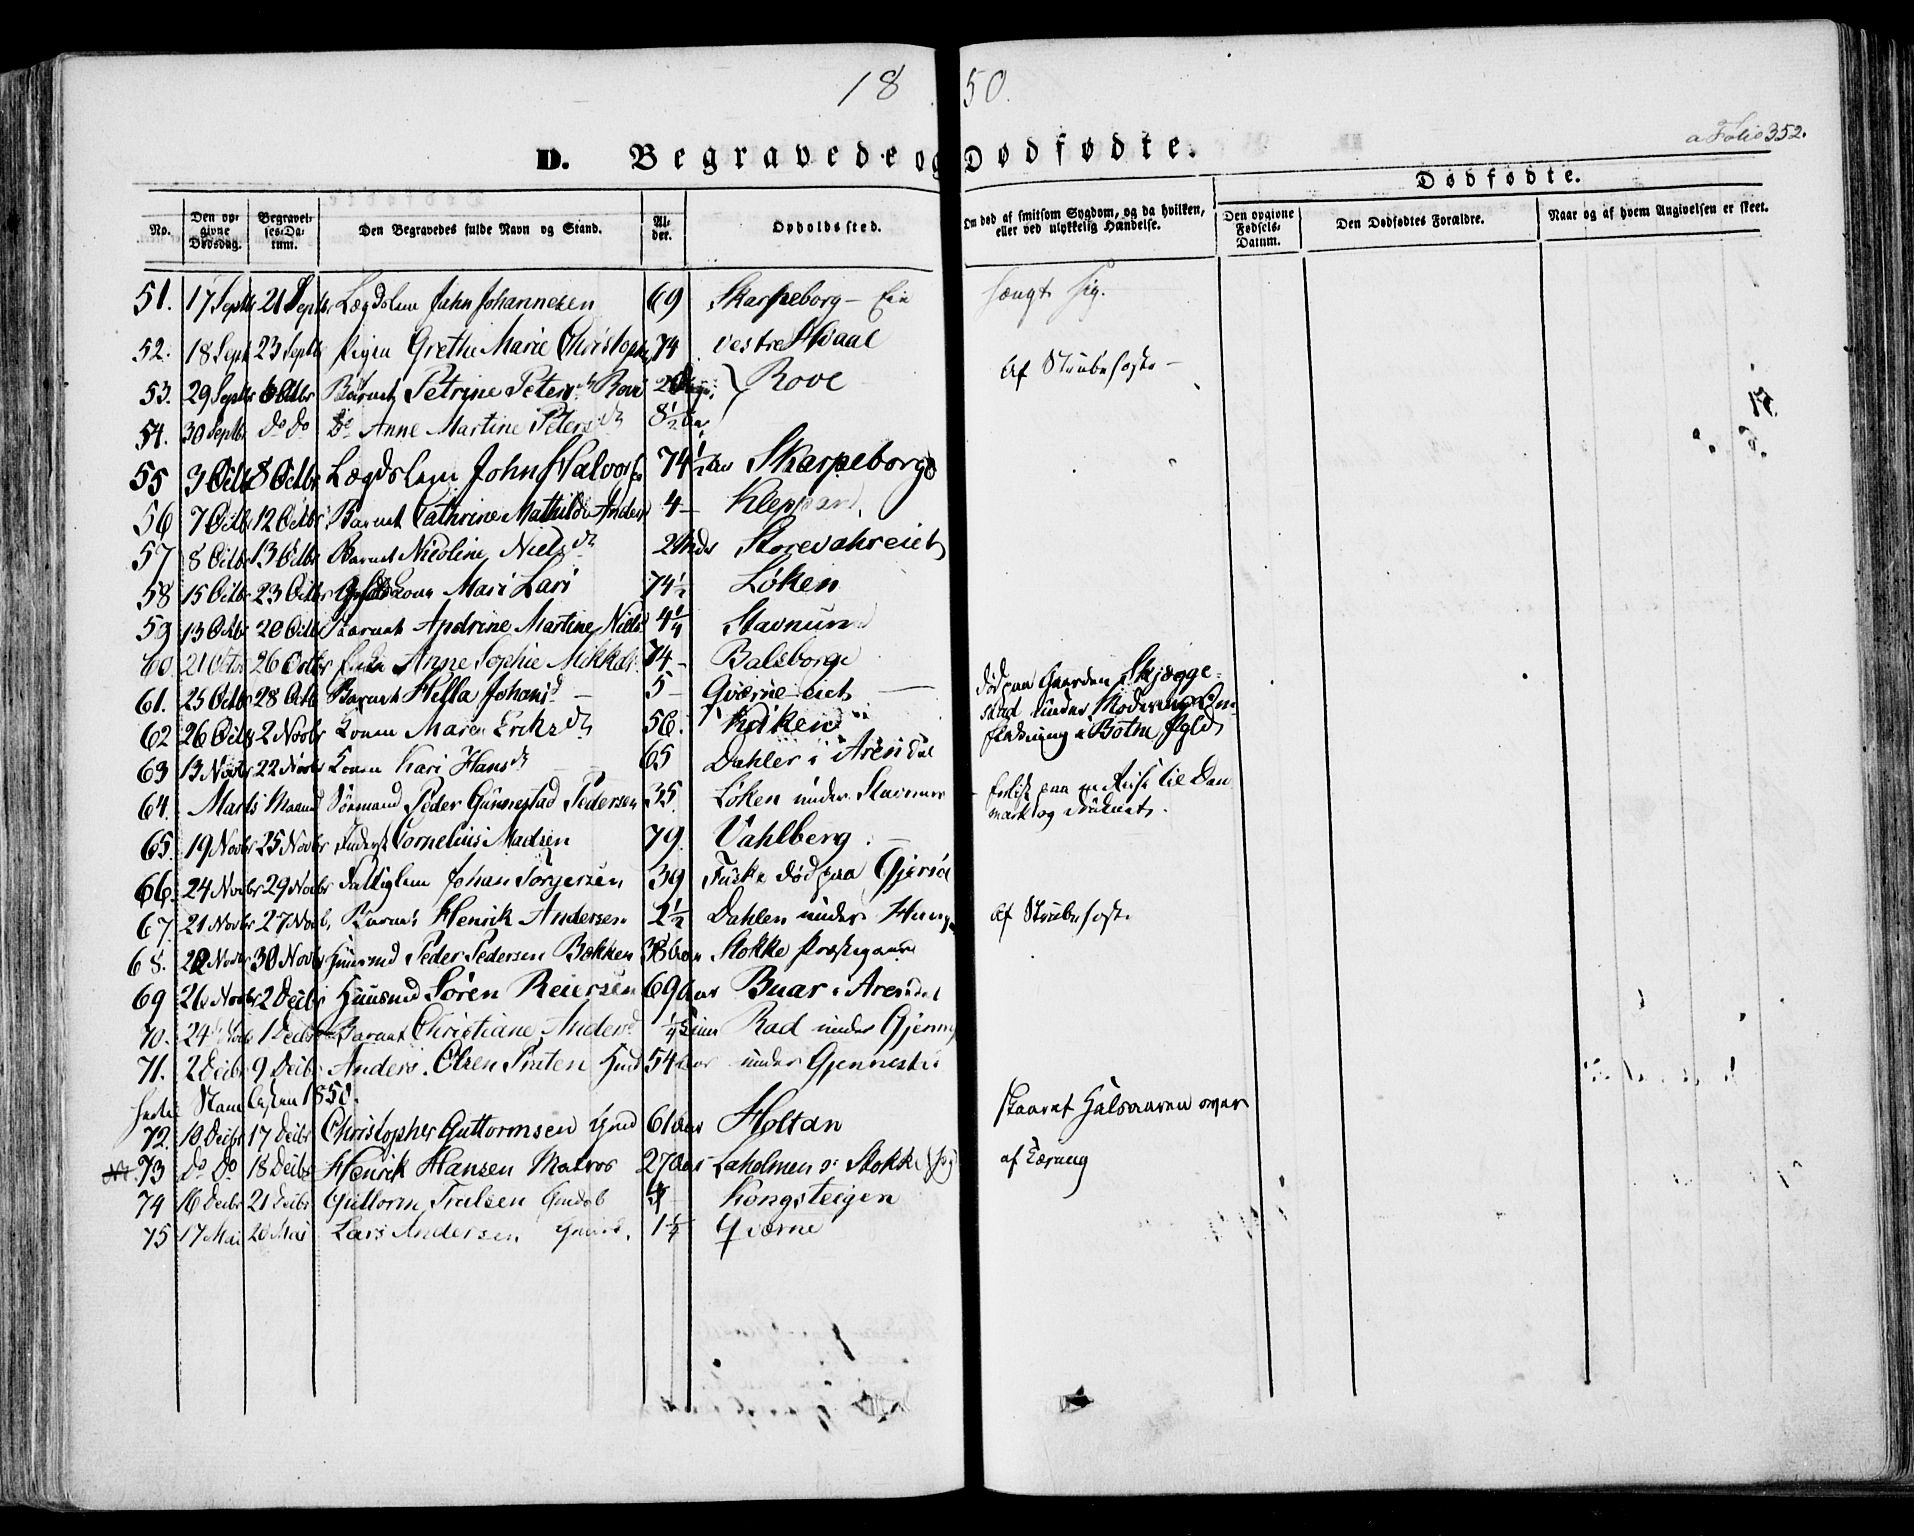 18 50.
a Folio 352.
D. Begravede og Dødfødte.
Dødfødte.
No. Den opgivne Dødsdag. Begravelses-Datum. Den Begravedes fulde Navn og Stand. Alder. Opholdssted. Om død af smitsom Sygdom, og da hvilken, eller ved ulykkelig Hændelse. Den opgivne Fødsels-Datum. Den Dødfødtes Forældre. Naar og af hvem Angivelsen er skeet.
51. 17 Septbr 21 Septbr Lægdslem Jahn Johannesen 69 Skarpeborg hængt sig.
52. 18 Sept 23 Septbr Pigen Grethe Marie Christoph 74 vestre Hvaal
53. 29 Septbr 6 Octbr Barnet Petrine Petersd Rove } Rove Af Strubehoste
54. 30 Septbr do do Do Anne Martine Petersdtr 8½
55 3 Octbr 8 Octbr Lægdslem John Halvors 74½ Skarpeborg
56 7 Octbr 12 Octbr Barnet Cathrine Mathilde Anders 4 Kleppan
57 8 Octbr 13 Octbr Barnet Nicoline Nielsdtr Storevahreiet
58 15 Octbr 23 Octbr Mari Lars 74½ Løken
59 13 Octbr 20 Octbr Barnet Andrine Martine Niels 4¼ Stavnum
60. 21 Octbr 26 Octbr Anne Sophie Mikkels 74 Balsborge
61. 25 Octbr 28 Octb Barnet Hella Johansd 5 Gværne eiet død paa Gaarden Skjægge-
62 26 Octbr 2 Novbr Konen Maren Eriksdtr 56. Køken
63 13 Novbr 22 Novbr Konen Kari Hansdtr 65 Dahler i Arendal
64. Marts Maaned Sømand Peder Gunnestad Pedersen 35. Løken under Stavnum forlist paa en Reise til Dan
mark og druknet.
65. 19 Novbr 25 Novbr Inderst Cornelius Madsen 79. Vahlberg
66. 24 Novbr 29 Novbr Fattiglem Johan Torgersen 39 Fuske død paa Gjersøe
67. 21 Novbr 27 Novb. Barnet Henrik Andersen 2½ Dahlen under Haug Af Strubehoste
68. 22 Novbr 30 Novbr Huusmd Peder Pedersen Bakken 38 Aar Stokke Præstegaard
69 26 Novbr 2 Decbr Huusmd Søren Reiersen 69 Aar Buar i Arendal
70. 24 Novb 1 Decbr Barnet Christiane Andersd Rød under Gjenne
71. 2 Decbr 9 Decbr Anders Olsen Pruten Hmd 54 Aar under Gjennestad
1850.
72. 10 Decbr 17 Decbr Christopher Guttormsen Gmd 61 Aar Holtan skaaret Halsaaren over
73 do do 18 Decbr Henrik Hansen Matros 27 Aar Laholmen i Stokke af Tæring
74 16 Decbr 21 Decbr Guttorm Trulsen Kongsteigen
75 17 Mai 20 Mai Lars Andersen 1¼ Gværne